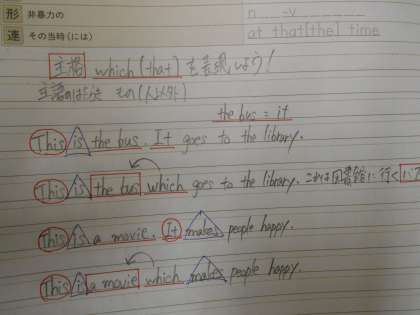 形 非暴力の n -v
連 その当時(には) at that[the] time
主格 which(that)を表現しよう!
主語のはたらき もの(人以外)
the bus = it
This is the bus. It goes to the library.
This is the bus which goes to the library. これは図書館に行くバス
This is a movie. It makes people happy.
This is a movie which makes people happy.